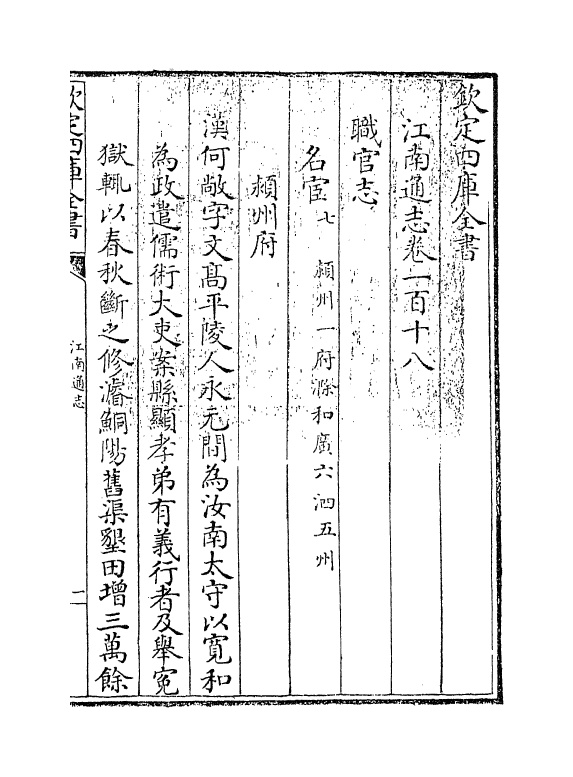 欽定四庫全書
江南通志卷一百十八
職官志
名宦七 潁州一府滁和廣六泗五州
潁州府
漢何敞字文髙平陵人永元間為汝南太守以寛和
為政遣儒術大吏案縣顯孝弟有義行者及舉寃
獄輒以春秋斷之修濬鮦陽舊渠墾田增三萬餘
欽定四庫全書
江南通志